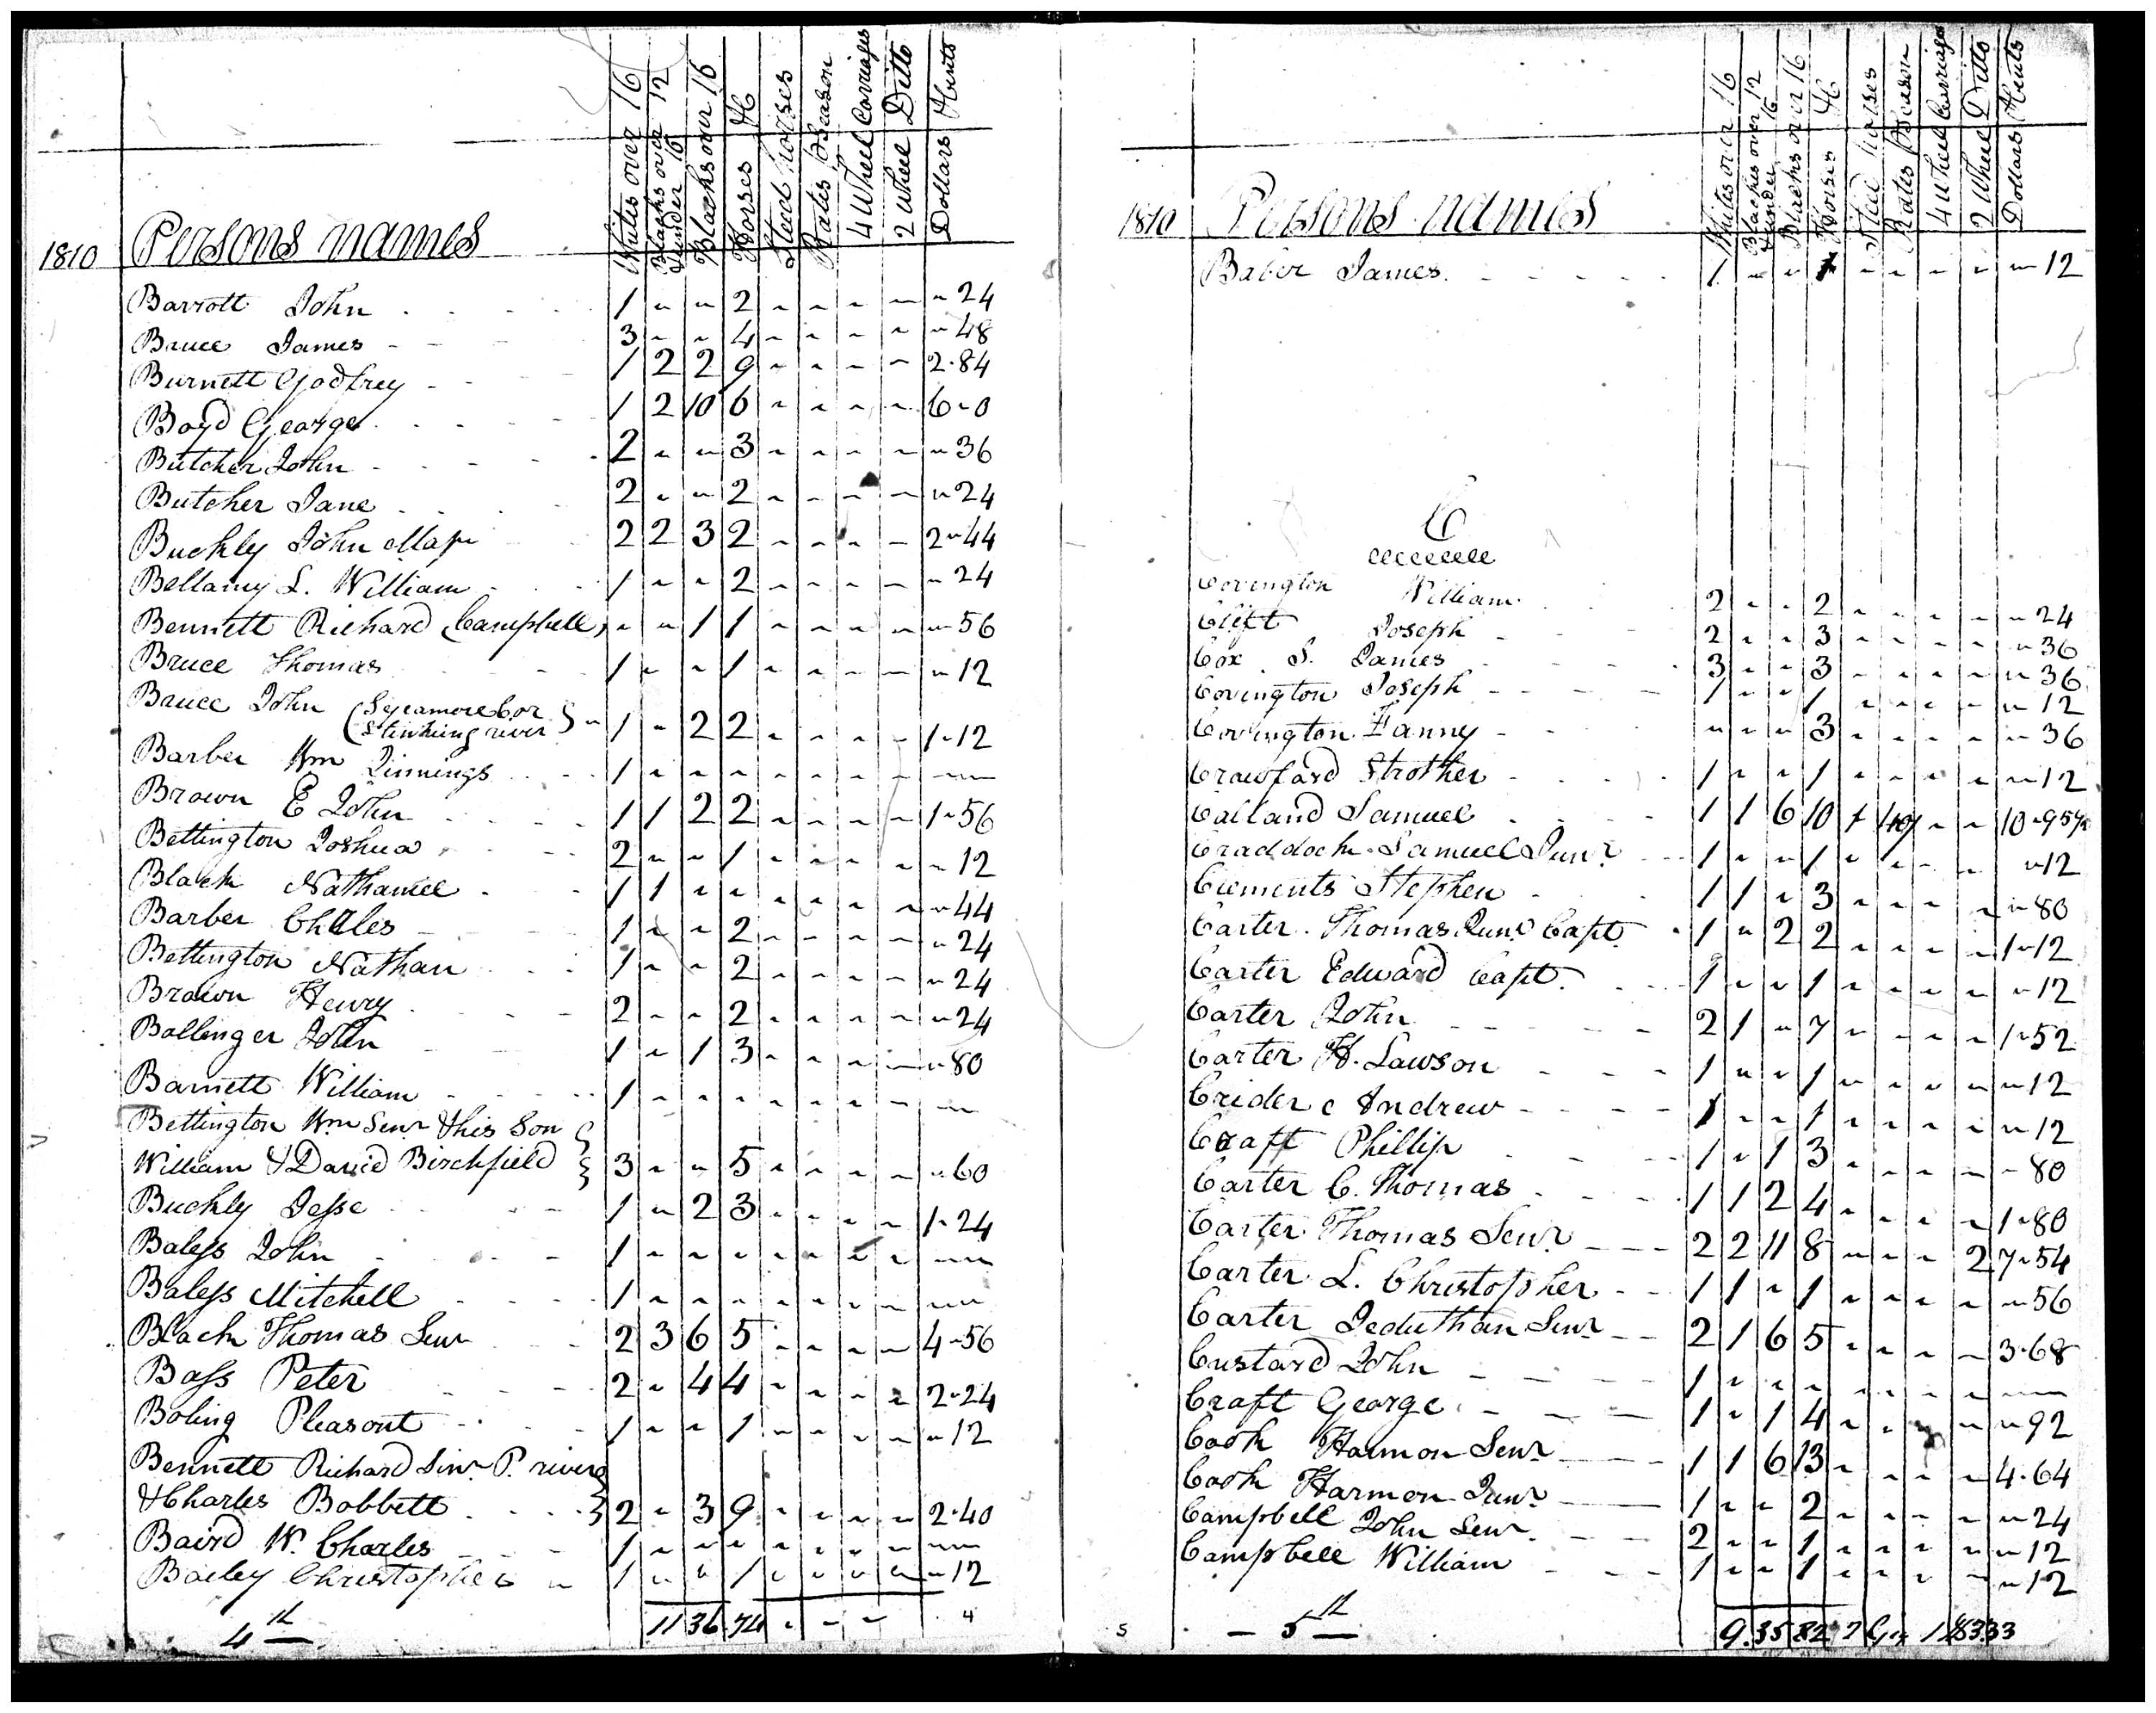 1810 Persons names Whites over 16 Blacks over 12 & under 16 Blacks over 16 Horses &c Stud horses Rates p season 4 Wheel Carriages 2 Wheel Ditto Dollars & Cents
Barrott John 1 " " 2 " " " " " 24
Bruce James 3 " " 4 " " " " " 48
Burnett Godfrey 1 2 2 9 " " " " 2.84
Boyd George 1 2 10 6 " " " " 6 " 0
Butcher John 2 " " 3 " " " " " 36
Butcher Jane 2 " " 2 " " " " " 24
Buckly John Maj 2 2 3 2 " " " " 2 " 44
Bellamy S. William 1 " " 2 " " " " " 24
Bennett Richard (Campbell) " " 1 1 " " " " " 56
Bruce Thomas 1 " " 1 " " " " " 12
Bruce John (Sycamore Cor
Stinking river) 1 " 2 2 " " " " 1 " 12
Barber Wm Jinnings 1 " " " " " " " "
Brown E John 1 1 2 2 " " " " 1 " 56
Bettington Joshua 2 " " 1 " " " " " 12
Black Nathaniel 1 1 " " " " " " " 44
Barber Charles 1 " " 2 " " " " " 24
Bettington Nathan 1 " " 2 " " " " " 24
Brown Henry 2 " " 2 " " " " " 24
Bollenger John 1 " 1 3 " " " " " 80
Barnett William 1 " " " " " " " "
Bettington Wm Senr & his Son
William & David Birchfield 3 " " 5 " " " " " 60
Buckly Jesse 1 " 2 3 " " " " 1 " 24
Baless John 1 " " " " " " " "
Baless Mitchell 1 " " " " " " " "
Black Thomas Senr 2 3 6 5 " " " " 4 " 56
Bass Peter 2 " 4 4 " " " " 2 " 24
Boling Pleasont 1 " " 1 " " " " " 12
Bennett Richard Sinr P. river
& Charles Bobbett 2 " 3 9 " " " " 2.40
Baird W. Charles 1 " " " " " " " "
Bailey Christopher 1 " " 1 " " " " " 12
4th 11 36 74 " " " 4
1810 Persons names Whites over 16 Blackes over 12 & under 16 Blacks over 16 Horses &c Stud horses Rates p Season 4 Wheel Carriages 2 Wheel Ditto Dollars & Cents
Baber James 1 " " 1 " " " " " 12
C
ccccccccc
Covington William 2 " " 2 " " " " " 24
Clift Joseph 2 " " 3 " " " " " 36
Cox S. James 3 " " 3 " " " " " 36
Covington Joseph 1 " " 1 " " " " " 12
Covington Fanny " " " 3 " " " " " 36
Crawford Strother 1 " " 1 " " " " " 12
Calland Samuel 1 1 6 10 1 " " 10 "
Craddock Samuel Junr 1 " " 1 " " " " " 12
Clements Stephen 1 1 " 3 " " " " " 80
Carter Thomas Junr Capt. 1 " 2 2 " " " " 1 " 12
Carter Edward Capt. 1 " " 1 " " " " " 12
Carter John 2 1 " 7 " " " " 1 " 52
Carter H. Lawson 1 " " 1 " " " " " 12
Crider Andrew 1 " " 1 " " " " " 12
Craft Phillip 1 " 1 3 " " " " " 80
Carter C. Thomas 1 1 2 4 " " " " 1 " 80
Carter Thomas Senr 2 2 11 8 " " " 2 7 " 54
Carter L. Christopher 1 1 " 1 " " " " " 56
Carter Jeduthan Senr 2 1 6 5 " " " " 3.68
Custard John 1 " " " " " " " "
Craft George 1 " 1 4 " " " " " 92
Cook Harmon Senr 1 1 6 13 " " " " 4.64
Cook Harmon Junr 1 " " 2 " " " " " 24
Campbell John Senr 2 " " 1 " " " " " 12
Campbell William 1 " " 1 " " " " " 12
5 5th 9 35 82